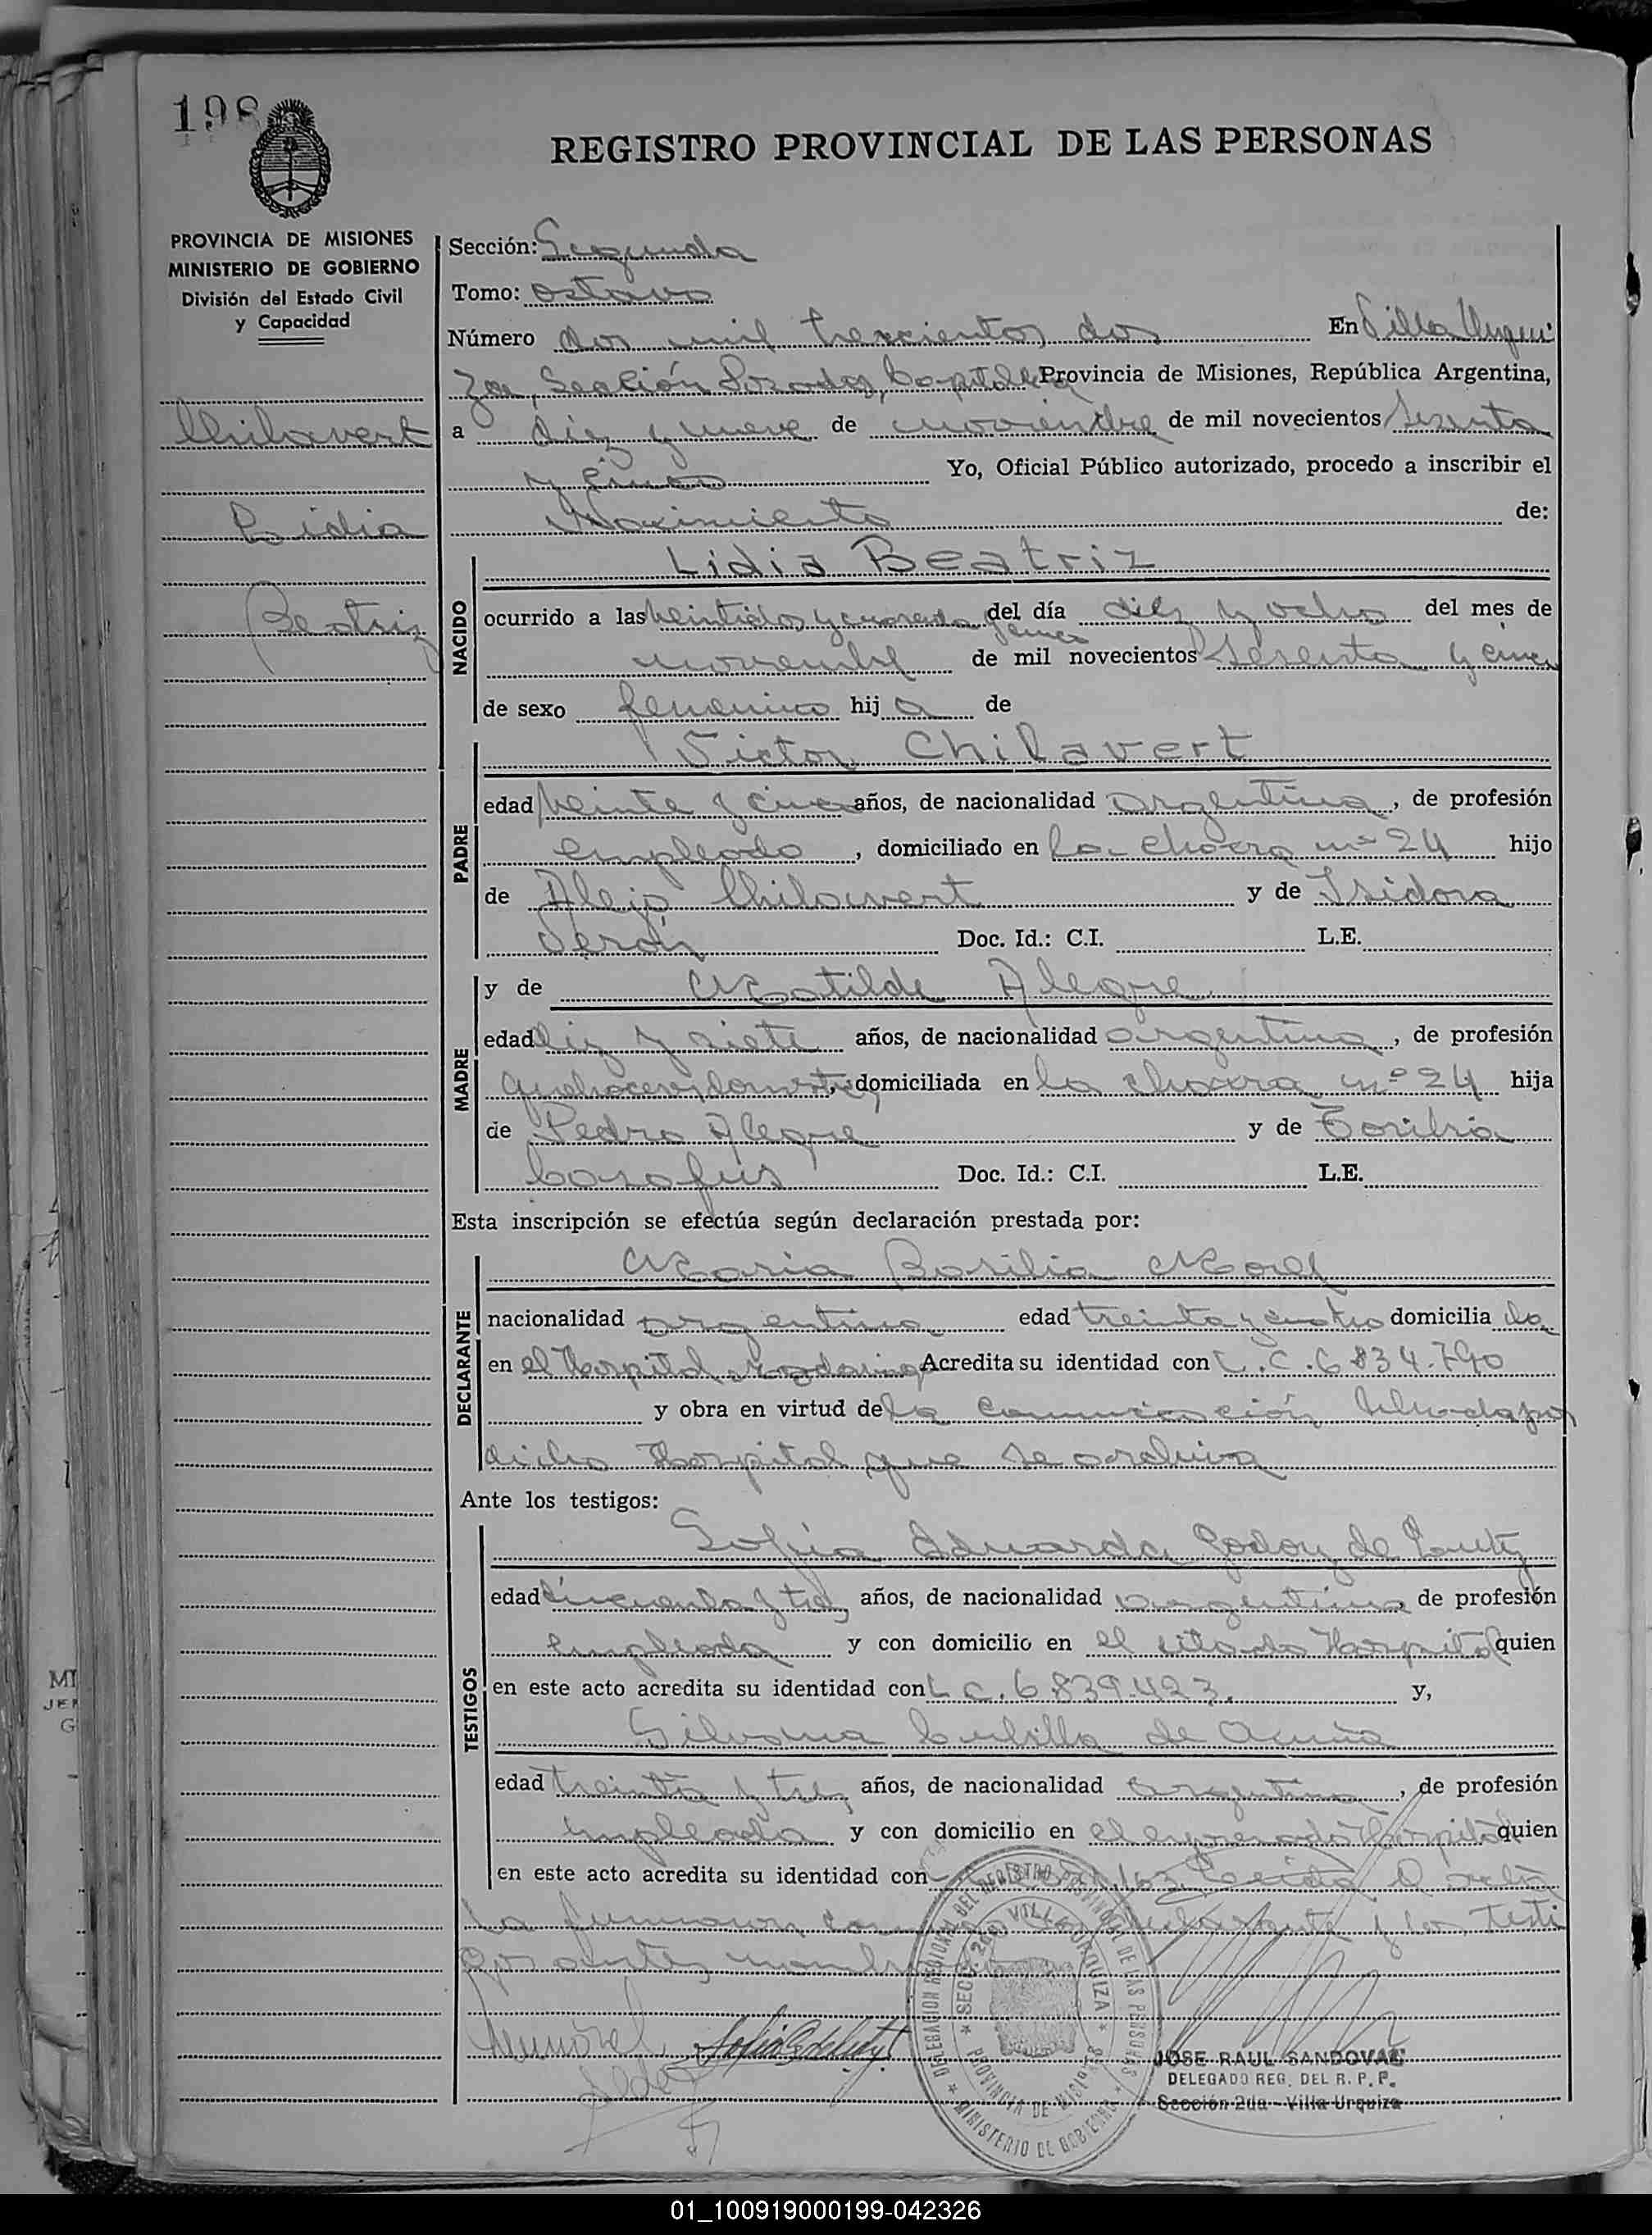 198
REGISTRO PROVINCIAL DE LAS PERSONAS
PROVINCIA DE MISIONES
MINISTERIO DE GOBIERNO
División del Estado Civil
y Capacidad
Chilavert
Lidia
Beatriz
Sección: Segunda
Tomo: octavo
Número dos mil trescientos dos En Villa Urqui
za, Sección Posadas, Capital Provincia de Misiones, República Argentina,
a diez y nueve de noviembre de mil novecientos sesenta
y cinco Yo, Oficial Público autorizado, procedo a inscribir el
Nacimiento de:
NACIDO
Lidia Beatriz
ocurrido a las veintidos y cuarenta y cinco del día diez y ocho del mes de
noviembre de mil novecientos sesenta y cinco
de sexo femenino hija de
PADRE
Victor Chilavert
edad veinte y cinco años, de nacionalidad argentina, de profesión
empleado, domiciliado en la chacra nº 24 hijo
de Alejo Chilavert y de Isidora
Doc. Id.: C.I. L.E.
MADRE
y de Matilde Alegre
edad diez y siete años, de nacionalidad argentina, de profesión
quehaceres domesticos, domiciliada en la chacra nº 24 hija
de Pedro Alegre y de Toribia
Doc. Id.: C.I. L.E.
Esta inscripción se efectúa según declaración prestada por:
DECLARANTE
Maria Basilia Morel
nacionalidad argentina edad treinta y cuatro domicilia da
en el Hospital Madariaga Acredita su identidad con L.C. 6834.790
y obra en virtud de la comunicación por
dicho Hospital que se archiva
Ante los testigos:
TESTIGOS
Sofia Eduarda Godoy de
edad cincuenta y tres años, de nacionalidad argentina de profesión
empleada y con domicilio en el citado Hospital quien
en este acto acredita su identidad con L.C. 6839.423. y,
Silvana de Acuña
edad treinta y tres años, de nacionalidad argentina, de profesión
empleada y con domicilio en el expresado Hospital quien
en este acto acredita su identidad con Leida el acta
la firmaron, conmigo declarante y los testi
gos antes
DELEGACION REGIONAL DEL REGISTRO PROVINCIAL DE LAS PERSONAS
SECC. 2da VILLA URQUIZA
PROVINCIA DE MISIONES
MINISTERIO DE GOBIERNO
JOSE RAUL SANDOVAL
DELEGADO REG. DEL R. P. P.
Sección 2da - Villa Urquiza
MI
JEF
G
01_100919000199-042326